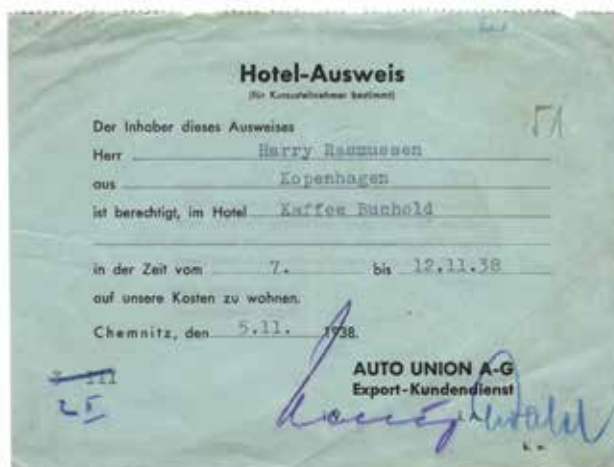 Hotel-Ausweis
(für Kursusteilnehmer bestimmt)
51
Der Inhaber dieses Ausweises
Herr Harry Rasmussen
aus Kopenhagen
ist berechtigt, im Hotel Kaffee Buchold
in der Zeit vom 7. bis 12.11.38
auf unsere Kosten zu wohnen.
Chemnitz, den 5.11. 1938.
AUTO UNION A-G
Export-Kundendienst